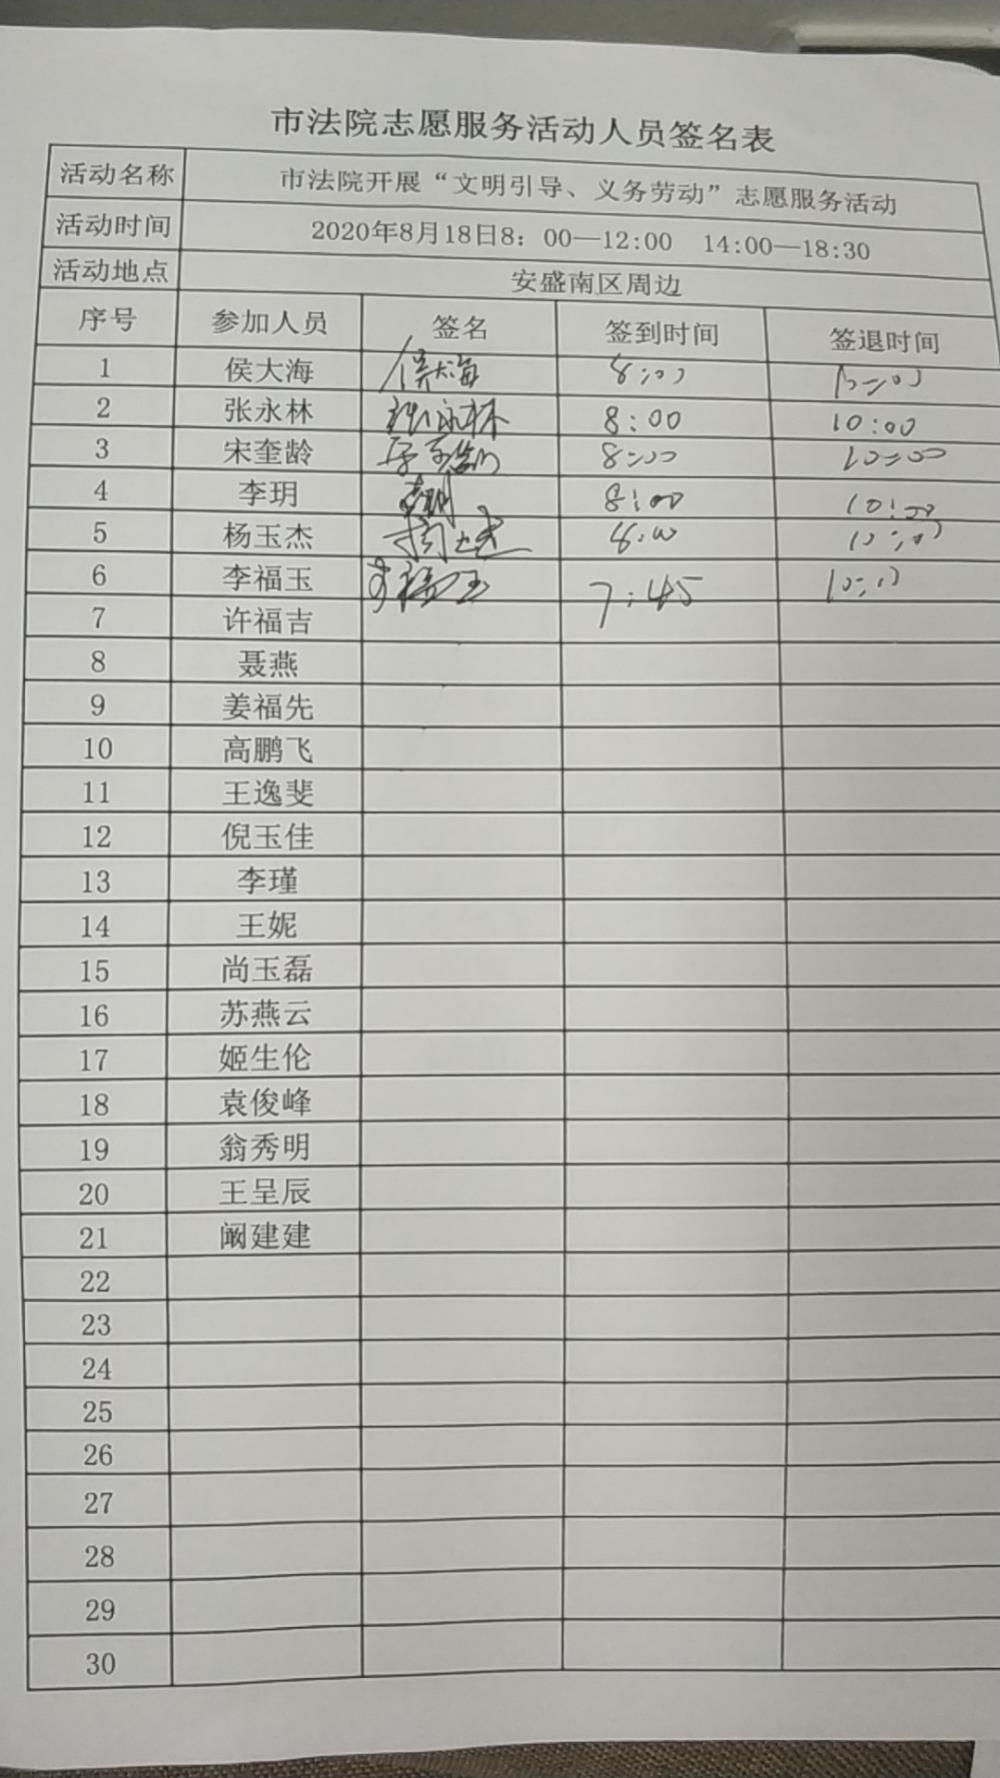 市法院志愿服务活动人员签名表
活动名称 市法院开展“文明引导、义务劳动”志愿服务活动
活动时间 2020年8月18日8：00—12:00 14:00—18:30
活动地点 安盛南区周边
序号 参加人员 签名 签到时间 签退时间
1 侯大海 侯大海 8:00 10:00
2 张永林 张永林 8:00 10:00
3 宋奎龄 8:00 10:00
4 李玥 李玥 8:00 10:00
5 杨玉杰 杨玉杰 8:00 10:00
6 李福玉 李福玉 7:45 10:00
7 许福吉
8 聂燕
9 姜福先
10 高鹏飞
11 王逸斐
12 倪玉佳
13 李瑾
14 王妮
15 尚玉磊
16 苏燕云
17 姬生伦
18 袁俊峰
19 翁秀明
20 王呈辰
21 阚建建
22
23
24
25
26
27
28
29
30